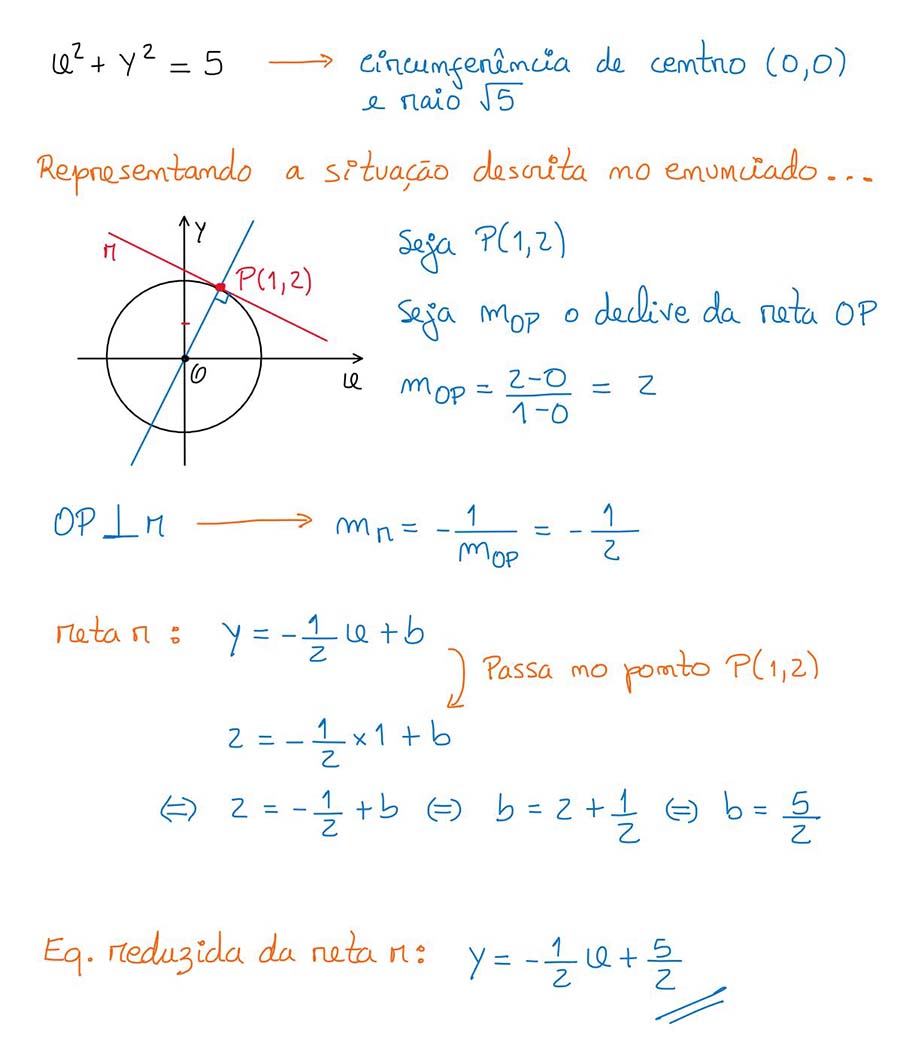 x² + y² = 5 → circunferência de centro (0,0)
e raio √5
Representando a situação descrita no enunciado...
y
r
P(1,2)
O
x
Seja P(1,2)
Seja m_OP o declive da reta OP
m_OP = (2-0)/(1-0) = 2
OP ⊥ r → m_r = -1/m_OP = -1/2
reta r: y = -1/2 x + b
Passa no ponto P(1,2)
2 = -1/2 × 1 + b
⇔ 2 = -1/2 + b ⇔ b = 2 + 1/2 ⇔ b = 5/2
Eq. reduzida da reta r: y = -1/2 x + 5/2